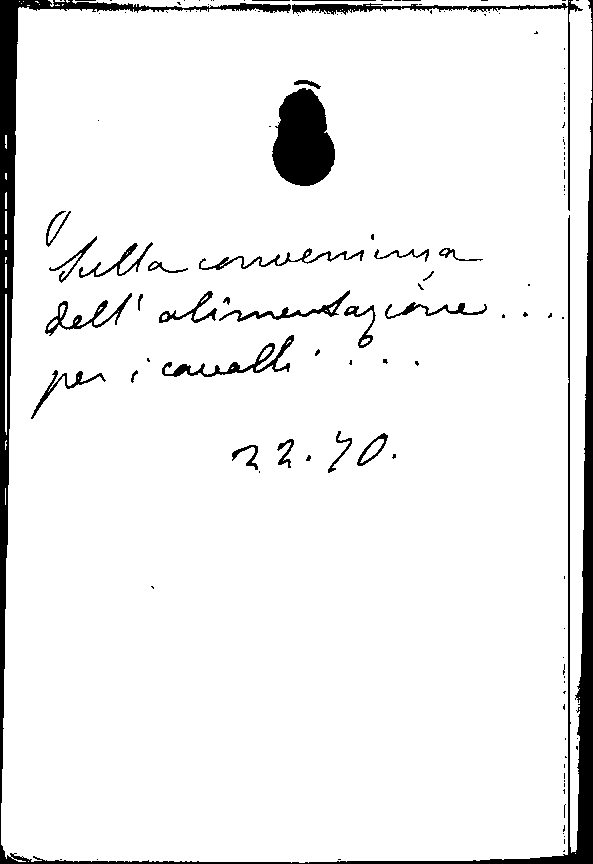 Sulla convenienza
dell' alimentazione....
per i cavalli....
22.70.